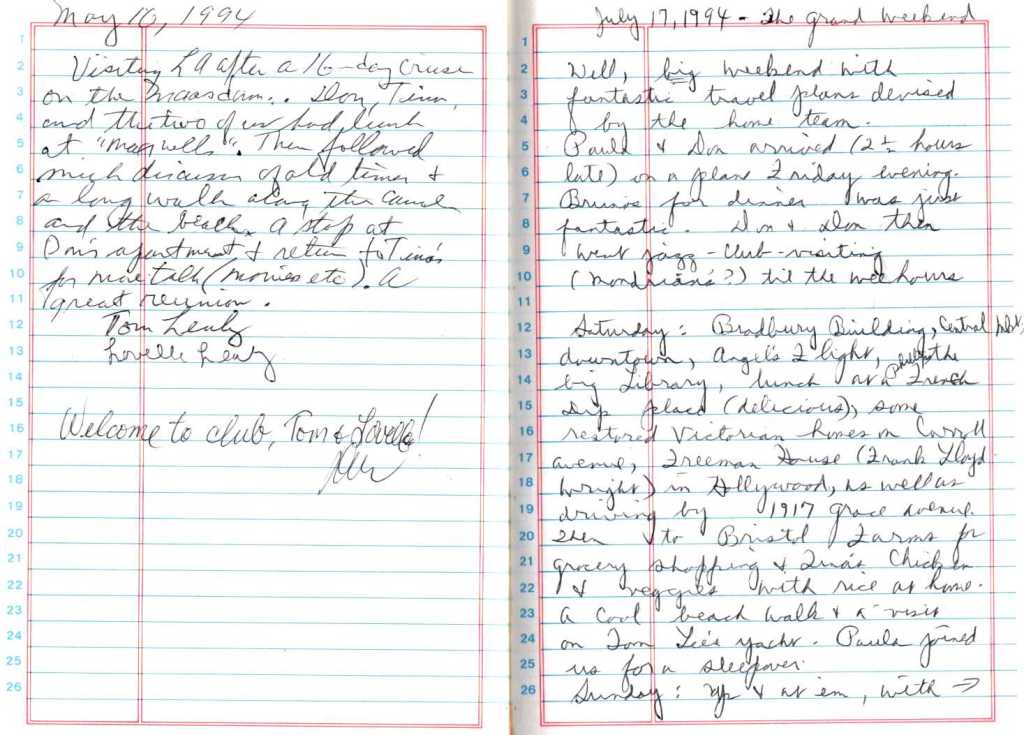 May 16, 1994
Visiting LA after a 16-day cruise
on the Maasdam.. Don, Tina,
and the two of us had lunch
at "Maxwells". Then followed
much discussion of old times &
a long walk along the canal
and the beach. A stop at
Don's apartment & return to Tina's
for more talk (movies etc). A
great reunion.
Tom Lealy
Lovelle Lealy
Welcome to club, Tom & Lovelle!
July 17, 1994 - The Grand Weekend
Well, big weekend with
fantastic travel plans devised
by the home team.
Paula & Don arrived (2½ hours
late) on a plane Friday evening.
for dinner was just
fantastic. Don & Don then
went jazz-club-visiting
(Mondrian's?) til the wee hours
Saturday: Bradbury Building, Central Mkt,
downtown, Angel's Flight, the
big Library, lunch at a Phillip's French
Dip place (delicious), some
restored Victorian homes on Carroll
avenue, Freeman House (Frank Lloyd
Wright) in Hollywood, as well as
driving by 1917 Grace avenue.
Then to Bristol Farms for
grocery shopping & Tina's Chicken
& veggies with rice at home.
A cool beach walk & a visit
on Tom Lee's yacht. Paula joined
us for a sleepover.
Sunday: up & at 'em, with →
1
2
3
4
5
6
7
8
9
10
11
12
13
14
15
16
17
18
19
20
21
22
23
24
25
26
1
2
3
4
5
6
7
8
9
10
11
12
13
14
15
16
17
18
19
20
21
22
23
24
25
26